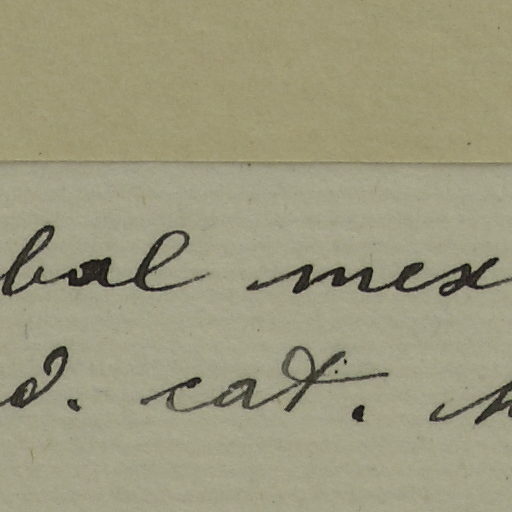 bal mex
d. cat.